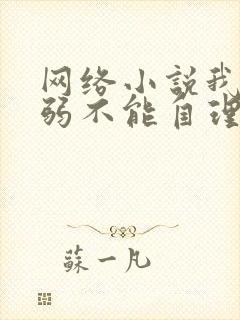 网络小説我
弱不能自理
蘇一凡